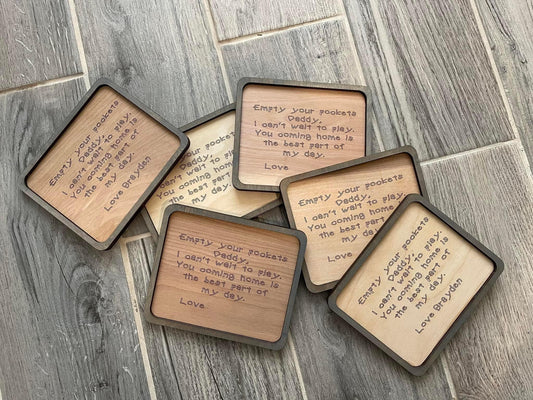 Empty your pockets
Daddy,
I can't wait to play.
You coming home is
the best part of
my day.
Love Brayden
Empty your pockets
Daddy,
I can't wait to play.
You coming home is
the best part of
my day.
Empty your pockets
Daddy,
I can't wait to play.
You coming home is
the best part of
my day.
Love
Empty your pockets
Daddy,
I can't wait to play.
You coming home is
the best part of
my day.
Love
Empty your pockets
Daddy,
I can't wait to play.
You coming home is
the best part of
my day.
Love
Empty your pockets
Daddy,
I can't wait to play.
You coming home is
the best part of
my day.
Love Brayden